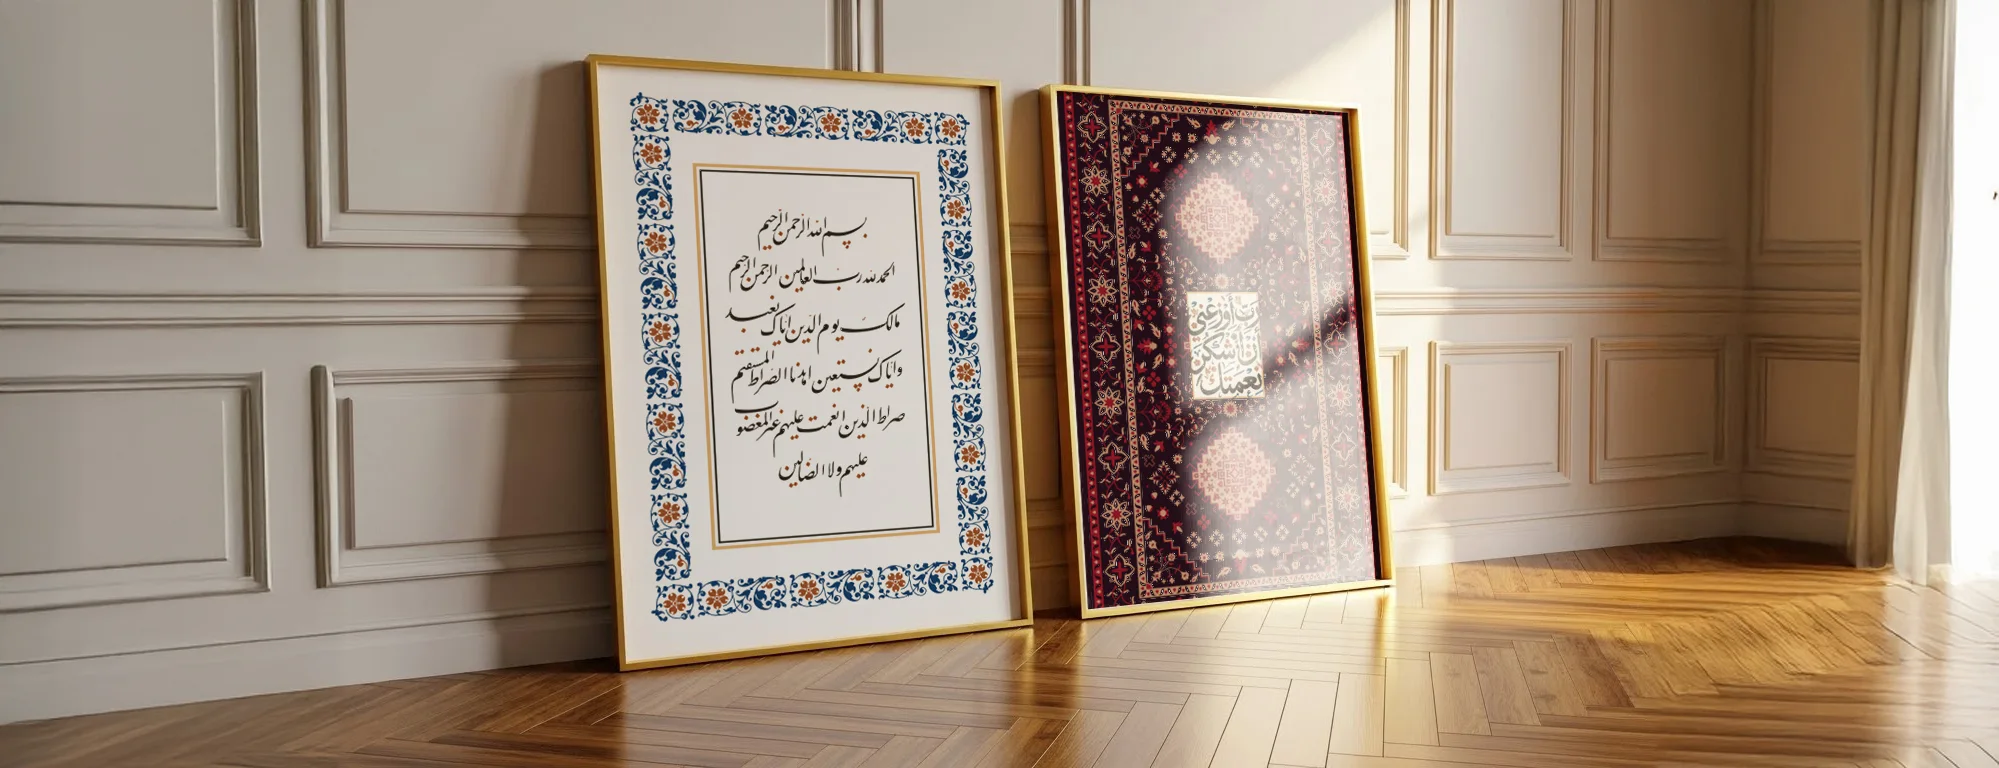 بسم الله الرحمن الرحيم
الحمد لله رب العالمين الرحمن الرحيم
مالك يوم الدين اياك نعبد
واياك نستعين اهدنا الصراط المستقيم
صراط الذين انعمت عليهم غير المغضوب
عليهم ولا الضالين
رَبِّ أَوْزِعْنِي
أَنْ أَشْكُرَ
نِعْمَتَكَ